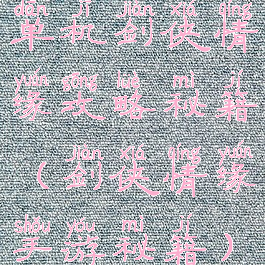 dān jī jiàn xiá qíng
单机剑侠情
yuán gōng lüè mì jí
缘攻略秘籍
jiàn xiá qíng yuán
(剑侠情缘
shǒu yóu mì jí
手游秘籍)